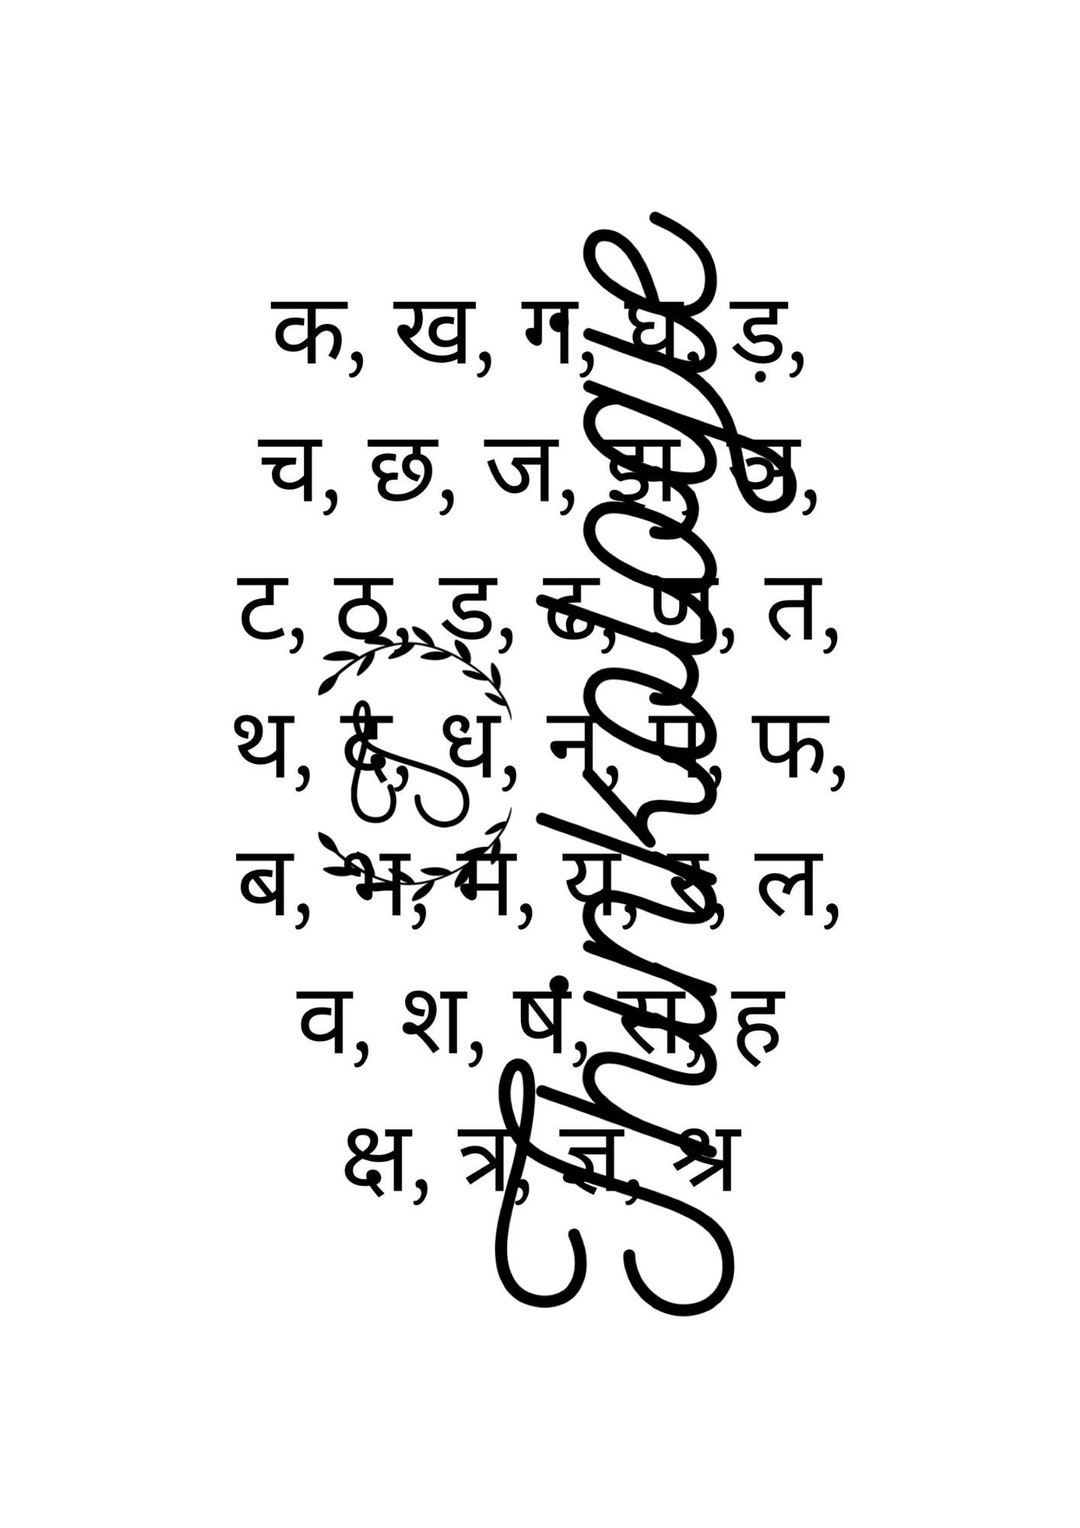 क, ख, ग, घ, ड़,
च, छ, ज, झ, ञ,
ट, ठ, ड, ढ, ण, त,
थ, द, ध, न, प, फ,
ब, भ, म, य, र, ल,
व, श, ष, स, ह
क्ष, त्र, ज्ञ, श्र
Thinkologie
T